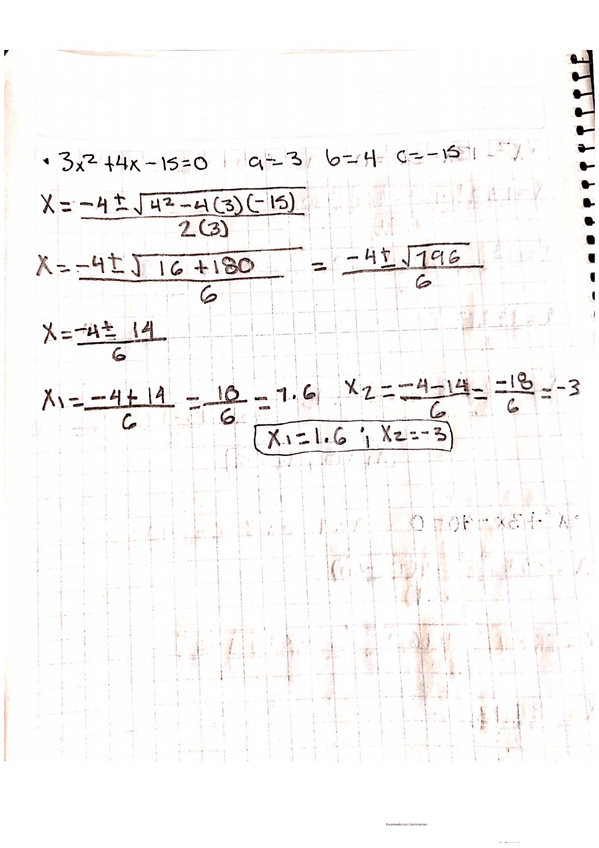 • 3x² +4x -15=0 a=3 b=4 c=-15
X = -4 ± √4² -4(3)(-15) / 2(3)
X = -4 ± √16 +180 / 6 = -4 ± √196 / 6
X = -4 ± 14 / 6
X₁ = -4+14 / 6 = 10 / 6 = 1.6 X₂ = -4-14 / 6 = -18 / 6 = -3
X₁=1.6 ; X₂=-3
Escaneado con CamScanner